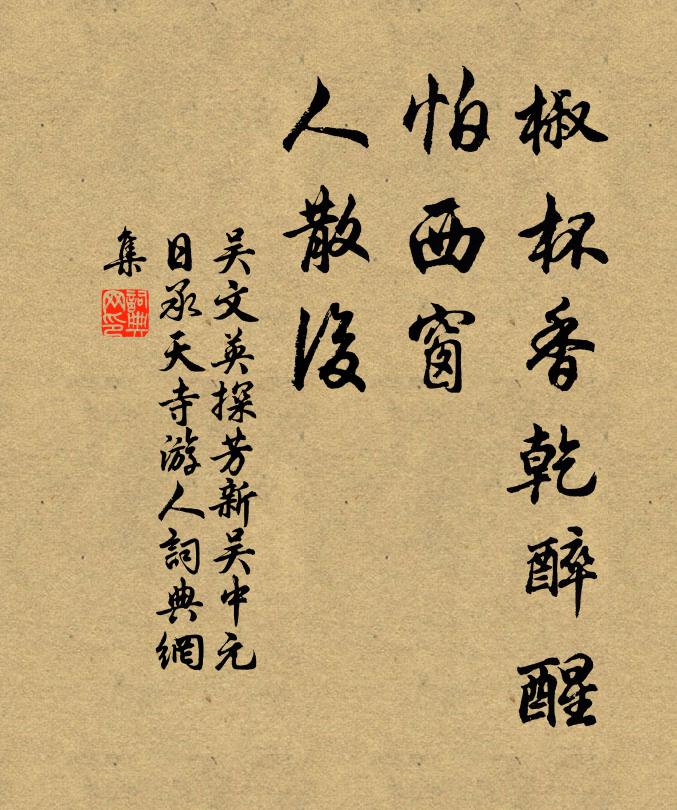 椒杯香乾醉醒
怕西窗
人散後
吴文英探芳新吴中元
日承天寺游人詞典網
集
詞典
网印